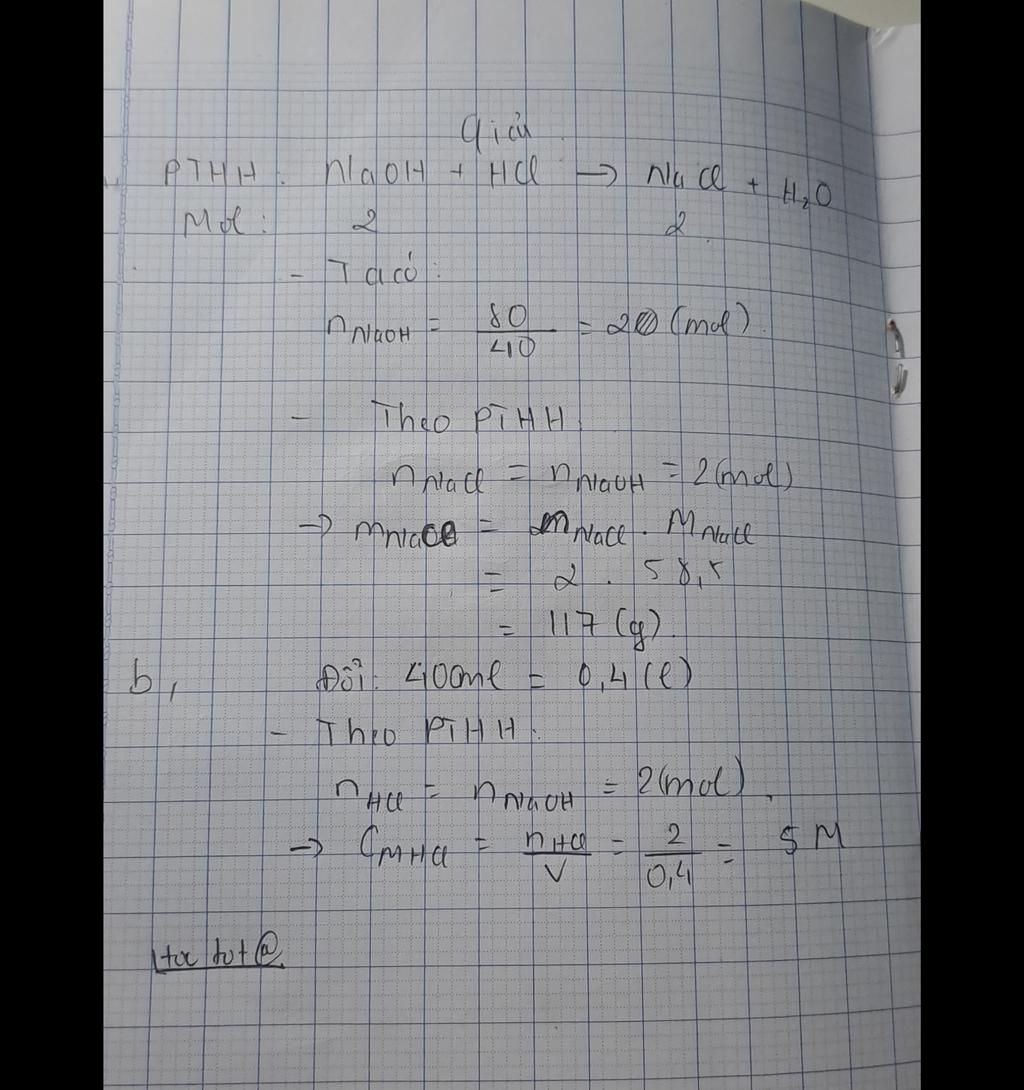 Giải
PTHH: NaOH + HCl → NaCl + H₂O
Mol: 2 2
- Ta có:
n NaOH = 80/40 = 2 (mol)
- Theo PTHH
n NaCl = n NaOH = 2 (mol)
→ m NaCl = n NaCl . M NaCl
= 2 . 58,5
= 117 (g)
b, Đổi: 400ml = 0,4 (l)
- Theo PTHH.
n HCl = n NaOH = 2 (mol).
→ C M HCl = n HCl/V = 2/0,4 = 5 M